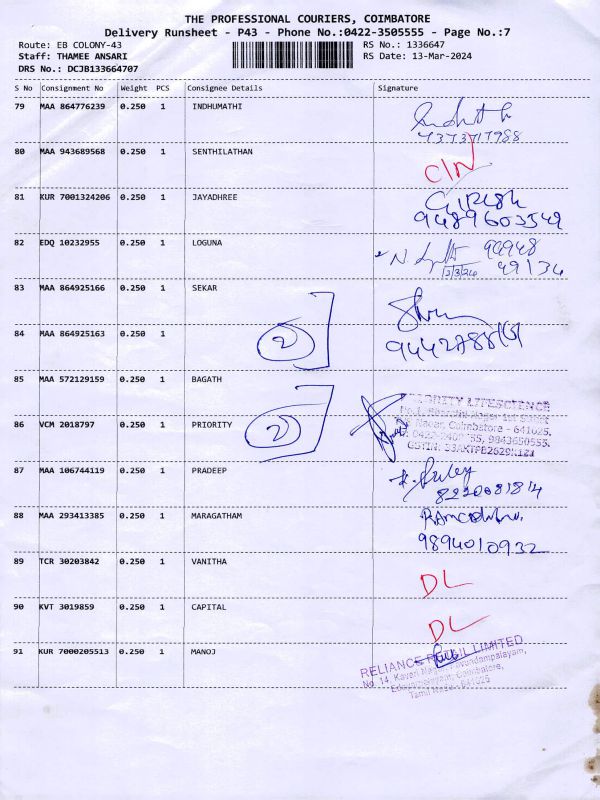 THE PROFESSIONAL COURIERS, COIMBATORE
Delivery Runsheet - P43 - Phone No.:0422-3505555 - Page No.:7
Route: EB COLONY-43 RS No.: 1336647
Staff: THAMEE ANSARI RS Date: 13-Mar-2024
DRS No.: DCJB133664707
S No Consignment No Weight PCS Consignee Details Signature
79 MAA 864776239 0.250 1 INDHUMATHI
80 MAA 943689568 0.250 1 SENTHILATHAN
C/N
81 KUR 7001324206 0.250 1 JAYADHREE
9489603549
82 EDQ 10232955 0.250 1 LOGUNA
N. 99948
49134
83 MAA 864925166 0.250 1 SEKAR
84 MAA 864925163 0.250 1
2
85 MAA 572129159 0.250 1 BAGATH
PRIORITY LIFESCIENCE
86 VCM 2018797 0.250 1 PRIORITY
2
Nagar, Coimbatore - 641025.
9843650555.
87 MAA 106744119 0.250 1 PRADEEP
88 MAA 293413385 0.250 1 MARAGATHAM
9894010932
89 TCR 30203842 0.250 1 VANITHA
DL
90 KVT 3019859 0.250 1 CAPITAL
DL
91 KUR 7000205513 0.250 1 MANOJ
RELIANCE RETAIL LIMITED
No 14, Kaveri Nagar,
Coimbatore,
Tamil Nadu - 641025